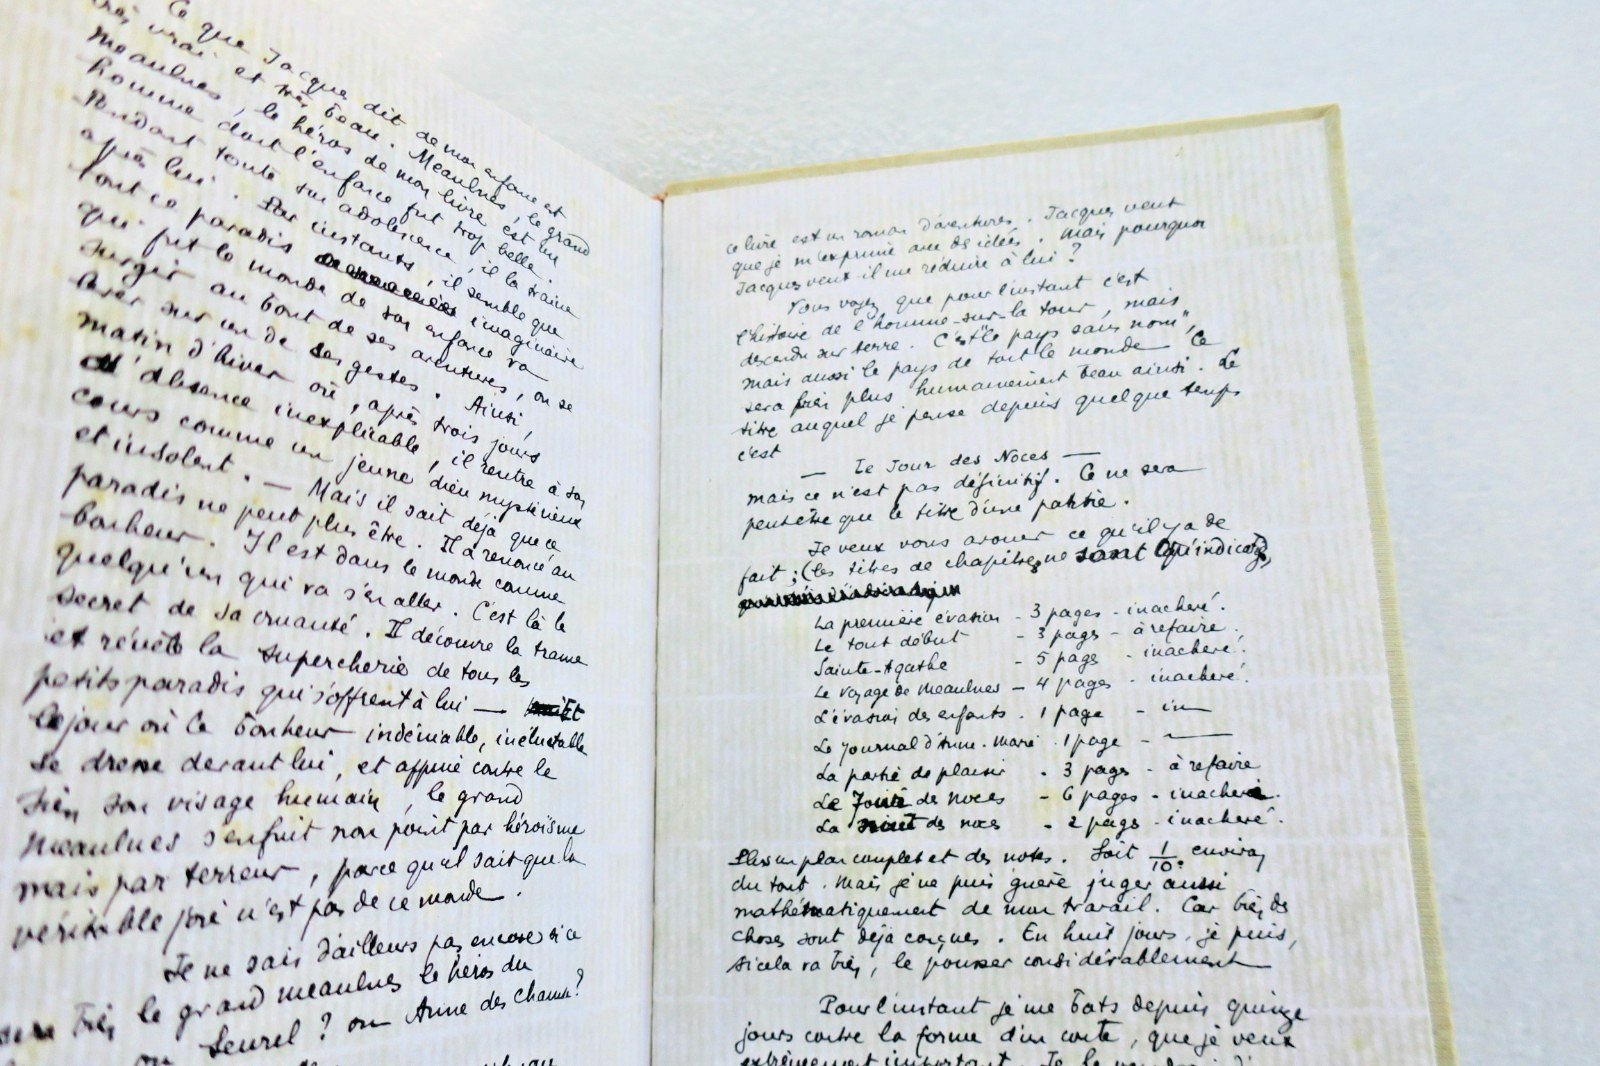 Ce que Jacques dit de mon enfance est
très vrai et très beau. Meaulnes, le grand
Meaulnes, le héros de mon livre est un
homme dont l'enfance fut trop belle.
Pendant toute son adolescence, il la traîne
après lui. Par instants, il semble que
tout ce paradis imaginaire
qui fut le monde de son enfance va
surgir au bout de ses aventures, ou se
lever sur un de ses gestes. Ainsi,
matin d'hiver où, après trois jours
d'absence inexplicable, il rentre à son
cours comme un jeune dieu mystérieux
et insolent. — Mais il sait déjà que ce
paradis ne peut plus être. Il a renoncé au
bonheur. Il est dans le monde comme
quelqu'un qui va s'en aller. C'est là le
secret de sa cruauté. Il découvre la trame
et révèle la supercherie de tous les
petits paradis qui s'offrent à lui — Et
le jour où le bonheur indéniable, inéluctable
se dresse devant lui, et appuie contre le
sien son visage humain, le grand
Meaulnes s'enfuit non point par héroïsme
mais par terreur, parce qu'il sait que la
véritable joie n'est pas de ce monde.
Je ne sais d'ailleurs pas encore si ce
sera bien le grand Meaulnes le héros du
ou Seurel ? ou Anne des Champs ?
ce livre est un roman d'aventures. Jacques veut
que je m'exprime avec des idées. Mais pourquoi
Jacques veut-il me réduire à lui ?
Vous voyez que pour l'instant c'est
l'histoire de l'homme-sur-la tour, mais
descendu sur terre. C'est "le pays sans nom",
mais aussi le pays de tout le monde. Ce
sera bien plus humainement beau ainsi. Le
titre auquel je pense depuis quelque temps
c'est
— Le Jour des Noces —
mais ce n'est pas définitif. Ce ne sera
peut-être que le titre d'une partie.
Je veux vous avouer ce qu'il y a de
fait ; (les titres de chapitres ne sont qu'indicatifs)
La première évasion - 3 pages - inachevé.
Le tout début - 3 pages - à refaire.
Sainte-Agathe - 5 pages - inachevé.
Le voyage de Meaulnes - 4 pages - inachevé.
L'évasion des enfants. 1 page - in—
Le journal d'Anne-Marie. 1 page - —
La partie de plaisir - 3 pages - à refaire
Le Jour de noces - 6 pages - inachevé.
La nuit des noces - 2 pages - inachevé.
Plus un plan complet et des notes. Soit 1/10e environ
du tout. Mais je ne puis guère juger aussi
mathématiquement de mon travail. Car bien des
choses sont déjà conçues. En huit jours, je puis,
si cela va bien, le pousser considérablement
Pour l'instant je me bats depuis quinze
jours contre la forme d'un conte, que je veux
extrêmement important. Je le